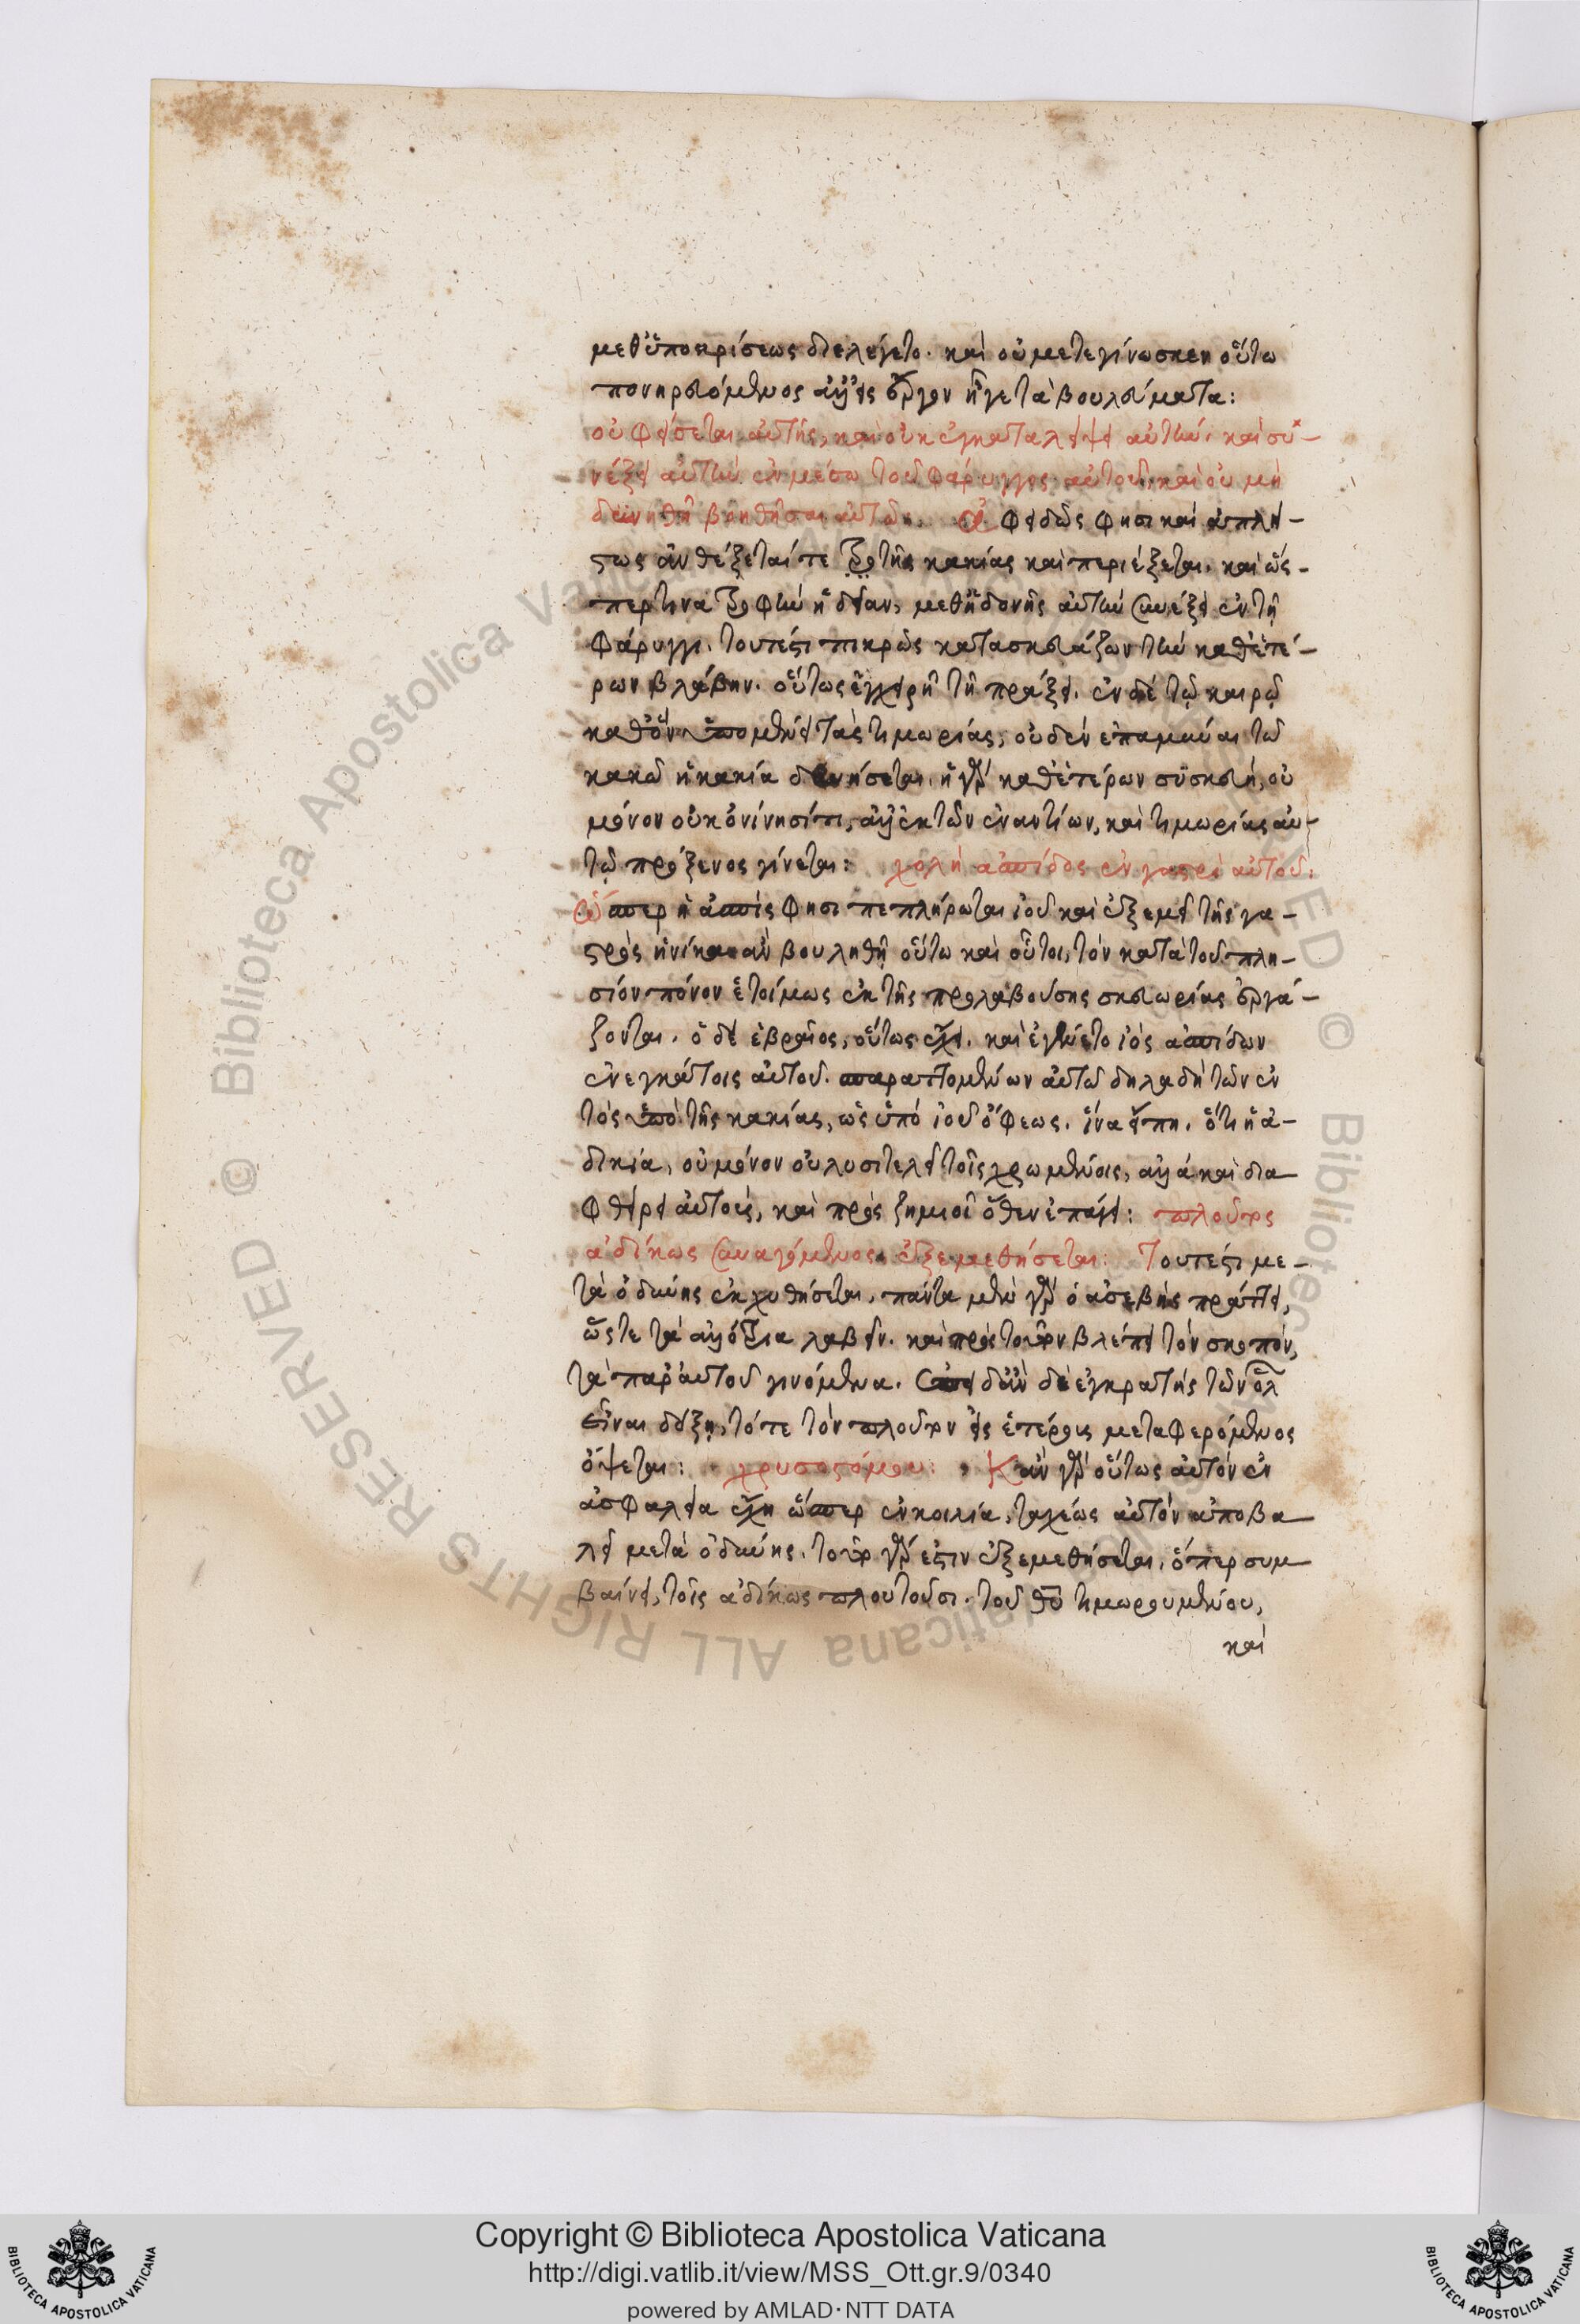 μεθ' ὑποκρίσεως διελέγετο. καὶ οὐ μετεγίνωσκεν οὕτω
πονηρευόμενος ἀλλ' εἰς ἔργον ἦγε τὰ βουλεύματα:
οὐ φείσεται αὐτῆς, καὶ οὐκ ἐγκαταλείψει αὐτήν. καὶ συ-
νέξει αὐτὴν ἐν μέσῳ τοῦ φάρυγγος αὐτοῦ, καὶ οὐ μὴ
δυνηθῇ βοηθῆσαι αὐτῷ. φειδῶς φησι καὶ ἀπλή-
στως ἀνθέξεταί τε τῆς κακίας καὶ περιέξεται. καὶ ὥσ-
περ τινα τροφὴν ἡδεῖαν, μεθ' ἡδονῆς αὐτὴν συνέξει ἐν τῇ
φάρυγγι. τουτέστι πικρῶς κατασκευάζων τὴν καθ' ἑτέ-
ρων βλάβην. οὕτως ἐγχειρεῖ τῇ πράξει. ἐν δὲ τῷ καιρῷ
καθ' ὃν ὑπομενεῖ τὰς τιμωρίας, οὐδὲν ἐπαμῦναι τῷ
κακῷ ἡ κακία δυνήσεται. ἡ γὰρ καθ' ἑτέρων συσκευή, οὐ
μόνον οὐκ ὀνίνησί τι, ἀλλ' ἐκ τῶν ἐναντίων, καὶ τιμωρίας αὐ-
τῷ πρόξενος γίνεται: χολὴ ἀσπίδος ἐν γαστρὶ αὐτοῦ:
ὥσπερ ἡ ἀσπίς φησι πεπλήρωται ἰοῦ καὶ ἐξεμεῖ τῆς γα-
στρὸς ἡνίκα ἂν βουληθῇ οὕτω καὶ οὗτοι, τὸν κατὰ τοῦ πλη-
σίον πόνον ἑτοίμως ἐκ τῆς προλαβούσης σκευωρίας ἐργά-
ζονται. ὁ δὲ ἑβραῖος, οὕτως ἔχει. καὶ ἐγένετο ἰὸς ἀσπίδων
ἐν ἐγκάτοις αὐτοῦ. σπαραττομένων αὐτῷ δηλαδὴ τῶν ἐν
τὸς ὑπὸ τῆς κακίας, ὡς ὑπὸ ἰοῦ ὄφεως. ἵνα εἴπῃ. ὅτι ἡ ἀ-
δικία, οὐ μόνον οὐ λυσιτελεῖ τοῖς χρωμένοις, ἀλλὰ καὶ δια
φθείρει αὐτοὺς, καὶ προσζημιοῖ ὅθεν ἐπάγει: πλοῦτος
ἀδίκως συναγόμενος ἐξεμεθήσεται: Τουτέστι με-
τὰ ὀδύνης ἐκχυθήσεται. πάντα μὲν γὰρ ὁ ἀσεβὴς πράττει,
ὥστε τὰ ἀλλότρια λαβεῖν. καὶ πρὸς τοῦτον βλέπει τὸν σκοπόν,
τὰ παρ' αὐτοῦ γινόμενα. ἐπειδὰν δὲ ἐγκρατὴς τῶν ὅλ
εἶναι δόξῃ, τότε τὸν πλοῦτον εἰς ἑτέρους μεταφερόμενος
ὄψεται: χρυσοστόμου: Κἂν γὰρ οὕτως αὐτὸν ἐν
ἀσφαλεία ἔχῃ ὥσπερ ἐν κοιλία, ταχέως αὐτὸν ἀποβα
λεῖ μετὰ ὀδύνης. τοῦτο γὰρ ἐστιν ἐξεμεθήσεται, ὅπερ συμ
βαίνει, τοῖς ἀδίκως πλουτοῦσι. τοῦ θυ τιμωρουμένου,
καὶ
Copyright © Biblioteca Apostolica Vaticana
http://digi.vatlib.it/view/MSS_Ott.gr.9/0340
powered by AMLAD · NTT DATA
BIBLIOTECA APOSTOLICA VATICANA
BIBLIOTECA APOSTOLICA VATICANA